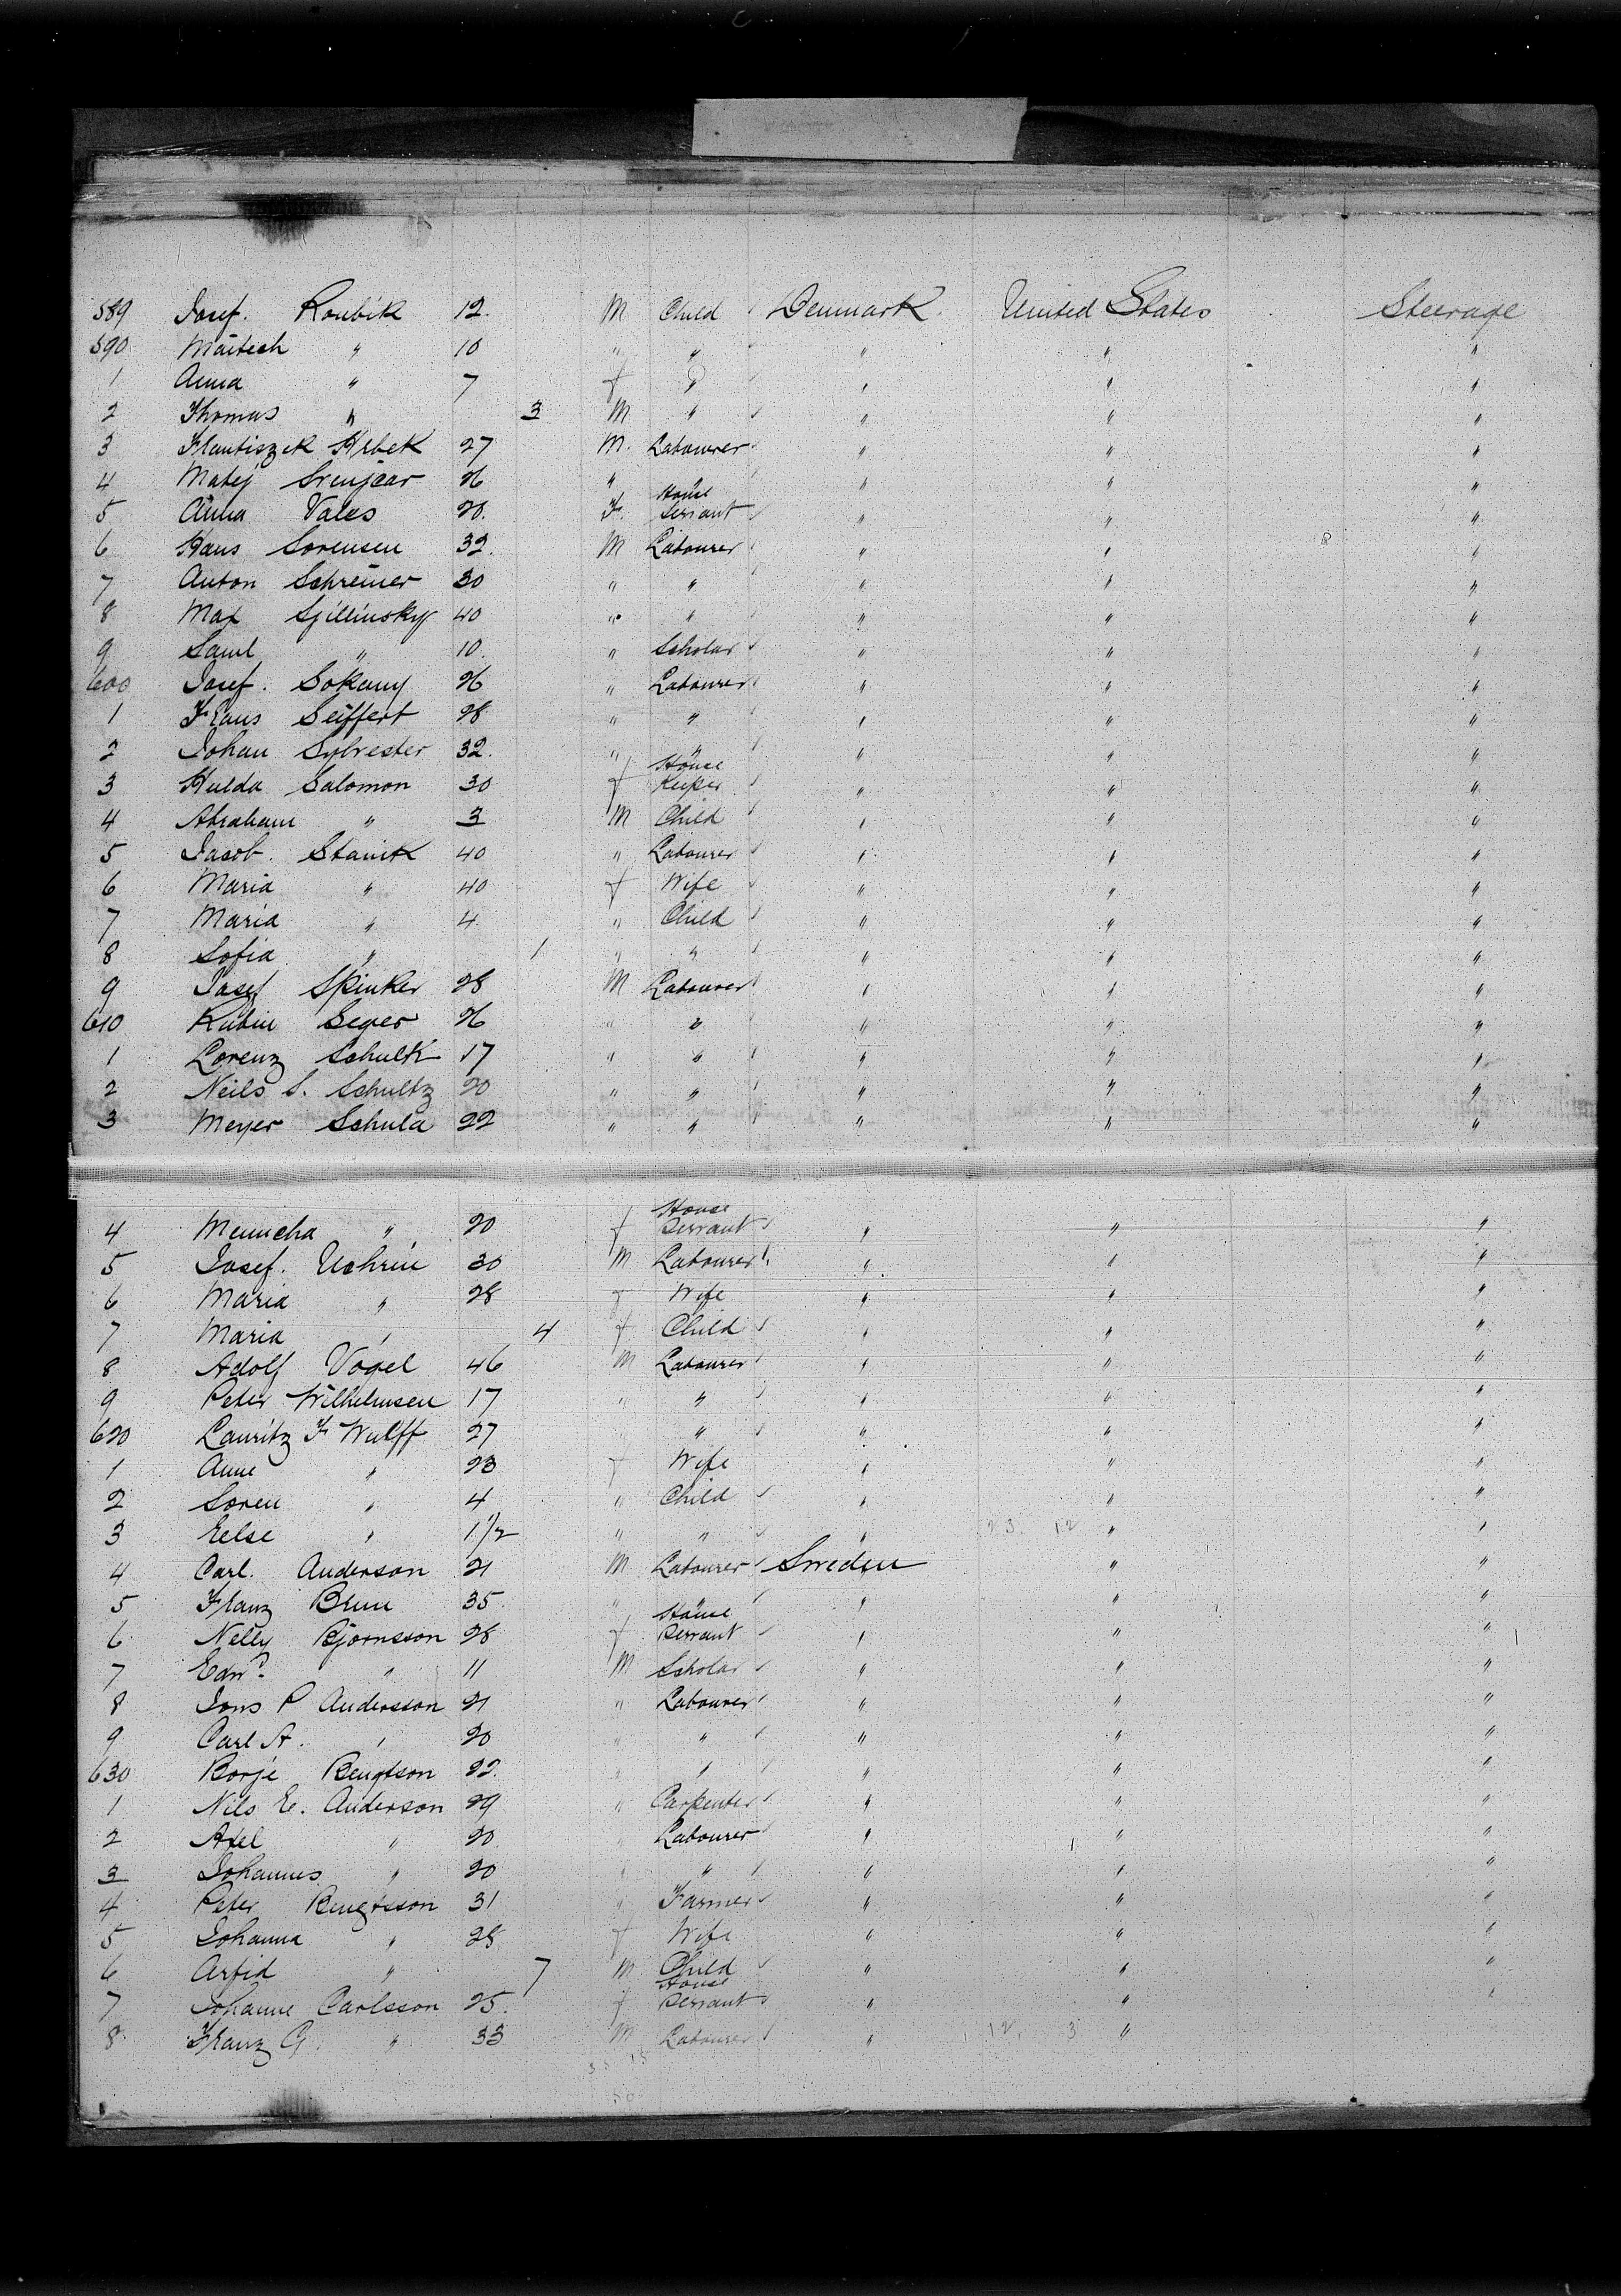 589 Josef. Roubik 12. M Child Denmark United States Steerage
590 Maitech " 10 " " " " "
1 Anna " 7 f " " " "
2 Thomas " 3 M " " " "
3 Frantiszek Hrbek 27 M. Labourer " " "
4 Matej 26 " " " " "
5 Anna Vales 20. F. House Servant " " "
6 Hans Sorensen 32. M Labourer " " "
7 Anton Schreiner 30 " " " " "
8 Max Sjillinsky 40 " " " " "
9 Saml " 10. " Scholar " " "
600 Josef. Sokany 26 " Labourer " " "
1 Klaus Seiffert 28 " " " " "
2 Johan Sylvester 32. " " " " "
3 Hulda Salomon 30 f House Keeper " " "
4 Abraham " 3 M Child " " "
5 Jacob. Stanik 40 " Labourer " " "
6 Maria " 40 f Wife " " "
7 Maria " 4. " Child " " "
8 Sofia " 1 " " " " "
9 Josef Spinker 28 M Labourer " " "
610 Rubin Seger 26 " " " " "
1 Lorenz Schulk 17 " " " " "
2 Neils S. Schultz 20 " " " " "
3 Meyer Schula 22 " " " " "
4 Menucha " 20 f House Servant " " "
5 Josef. Uchrin 30 M Labourer " " "
6 Maria " 28 f Wife " " "
7 Maria " 4 f Child " " "
8 Adolf Vogel 46 M Labourer " " "
9 Peter Wilhelmsen 17 " " " " "
620 Lauritz F Wulff 27 " " " " "
1 Anne " 23 f Wife " " "
2 Soren " 4 " Child " " "
3 Eelse " 1 1/2 " " " 23. 12 " "
4 Carl. Anderson 21 M Labourer Sweden " "
5 Franz Brun 35 " " " " "
6 Nelly Bjornsson 28 f House Servant " " "
7 Edwd. " 11 M Scholar " " "
8 Jons P Andersson 21 " Labourer " " "
9 Carl A. " 20 " " " " "
630 Borje Bengtson 22. " " " " "
1 Nils E. Anderson 29 " Carpenter " " "
2 Axel " 20 " Labourer " " "
3 Johannes " 20 " " " " "
4 Peter Bengtsson 31 " Farmer " " "
5 Johanna " 28 f Wife " " "
6 Arfid " 7 M Child " " "
7 Johanne Carlsson 25. f House Servant " " "
8 Franz G. " 33 M Labourer " 12. 3 "